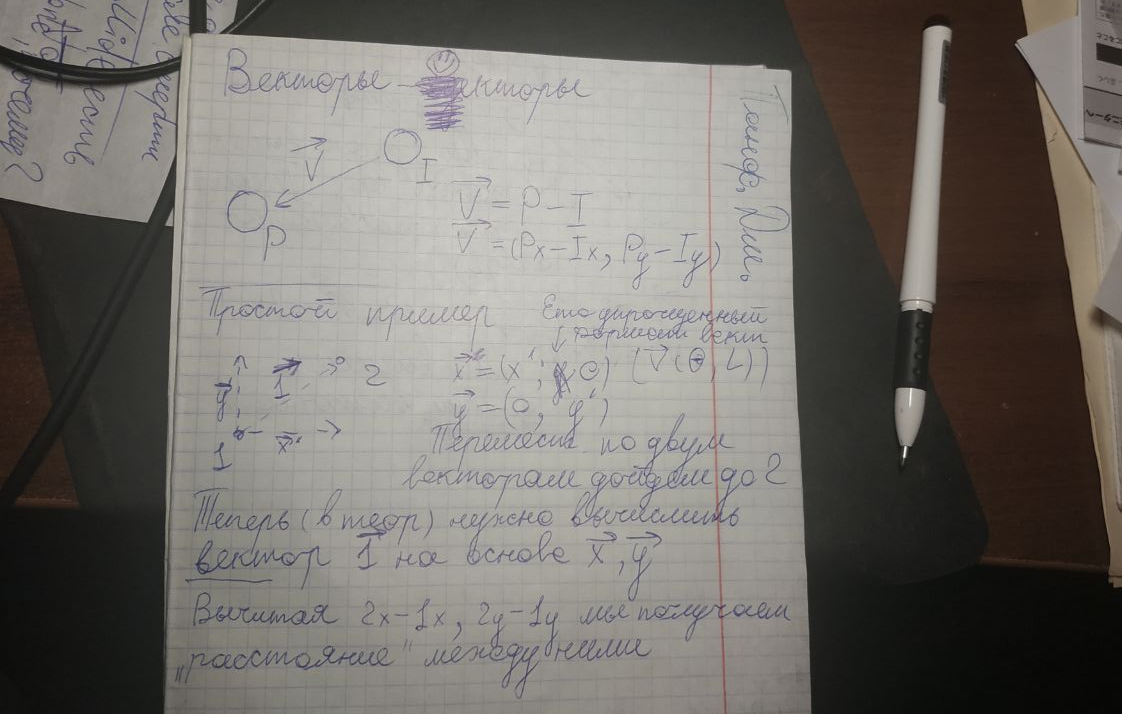 Векторы - екторы
V
I
P
V = P - I
V = (Px - Ix, Py - Iy)
Простой пример
Ето упрощенный
y
1
2
x = (x'; 0) (V(Θ, L))
y = (0, y')
1
x'
по двум
векторам дойдем до 2
Теперь (в теор) нужно вычислить
вектор 1 на основе x, y
Вычитая 2x-1x, 2y-1y мы получаем
„расстояние" между ними